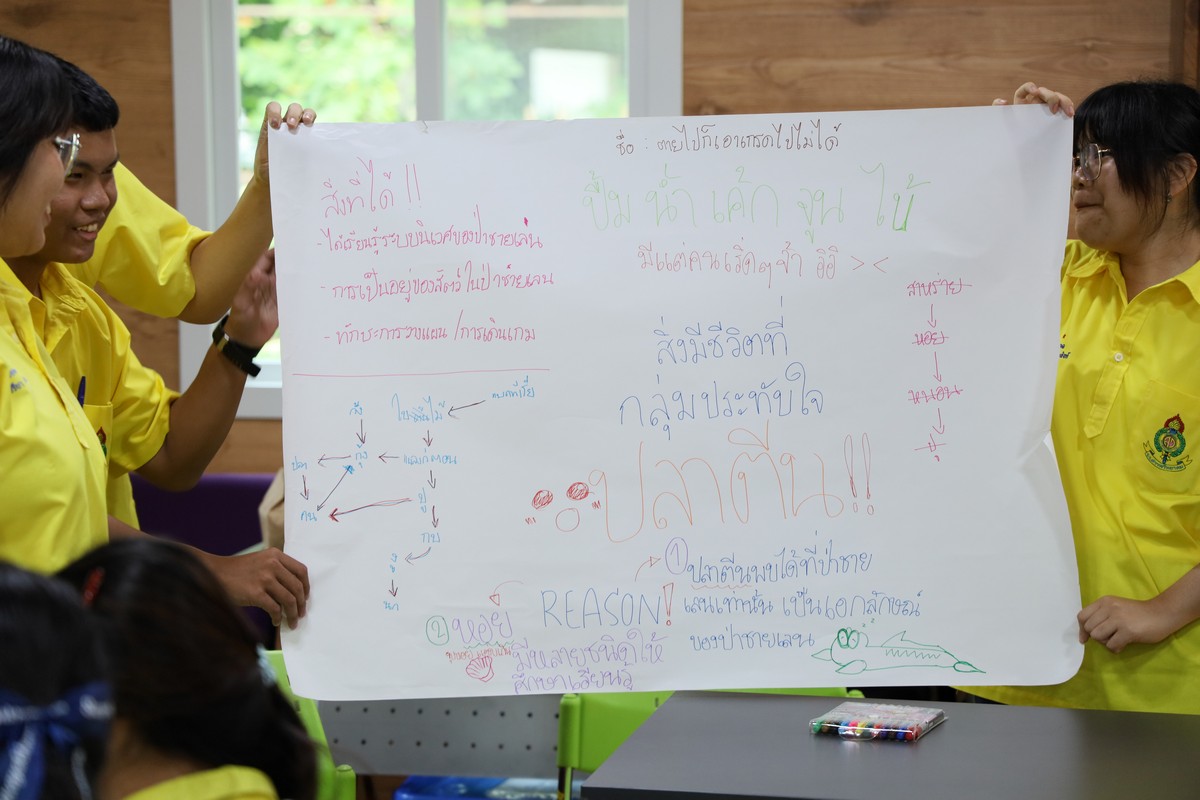 ชื่อ : ตายไปก็เอาเกรดไปไม่ได้
ปั้ม น้ำ เค้ก จูน ไบ้
มีแต่คนเริ่ดๆจ้ำ อิอิ ><
สิ่งที่ได้ !!
- ได้เรียนรู้ระบบนิเวศของป่าชายเลน
- การเป็นอยู่ของสัตว์ในป่าชายเลน
- ทักษะการวางแผน / การเดินเกม
แบคทีเรีย
ใบไม้
กุ้ง
ปลา
คน
ปู
กบ
งู
สิ่งมีชีวิตที่
กลุ่มประทับใจ
ปลาตีน!!
สาหร่าย
หอย
หนอน
ปู
REASON!
① ปลาตีนพบได้ที่ป่าชาย
เลนเท่านั้น เป็นเอกลักษณ์
ของป่าชายเลน
② หอย
มีหลายชนิดให้
ศึกษาเรียนรู้